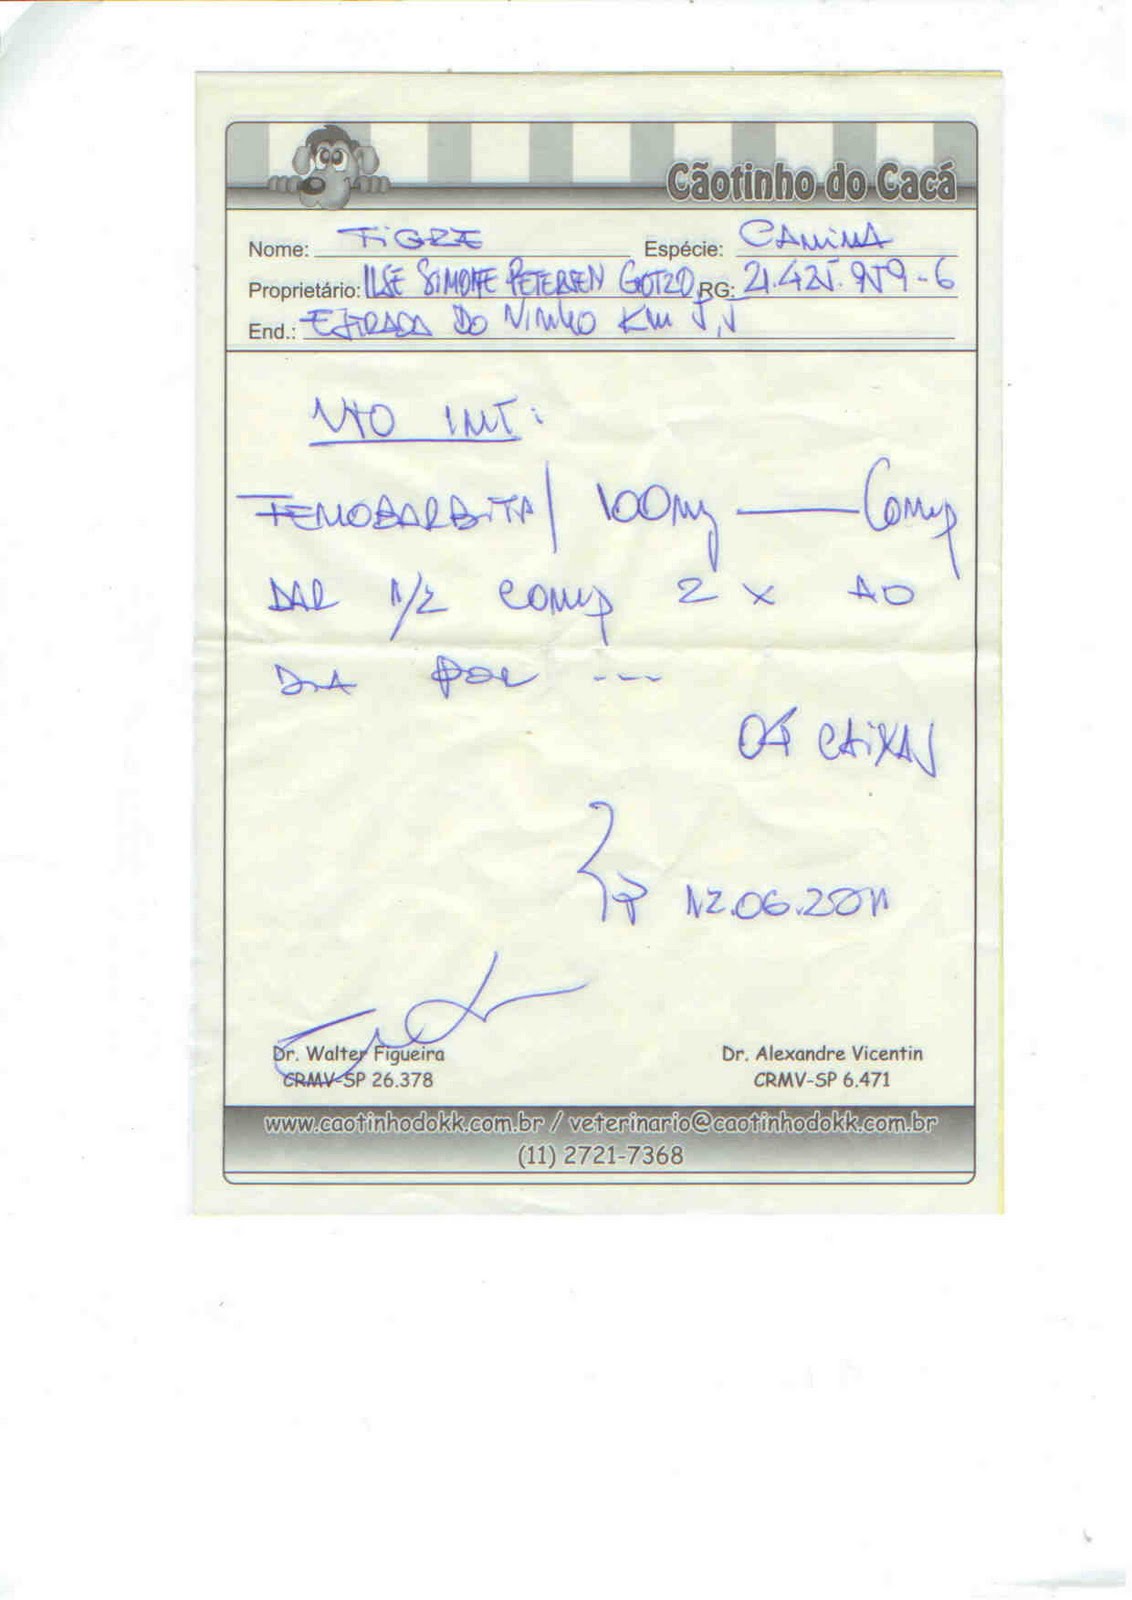 Cãotinho do Cacá
Nome: TIGRE Espécie: CANINA
Proprietário: ILSE SIMONE PETERSEN GOTZO RG: 21.425.959-6
End.: ESTRADA DO VINHO KM 5,5
USO INT:
FENOBARBITAL 100mg — Comp
DAR 1/2 comp 2 x AO
DIA POR ---
04 CAIXAS
12.06.2011
Dr. Walter Figueira Dr. Alexandre Vicentin
CRMV-SP 26.378 CRMV-SP 6.471
www.caotinhodokk.com.br / veterinario@caotinhodokk.com.br
(11) 2721-7368